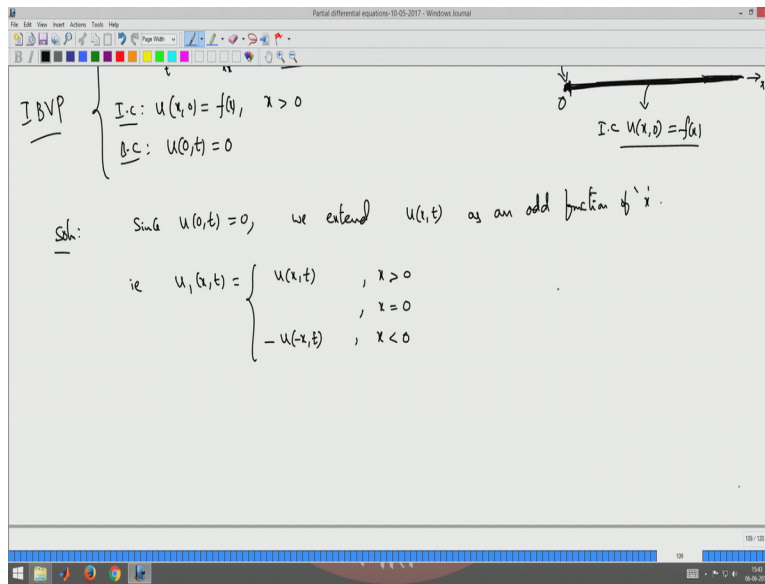 Partial differential equations-10-05-2017 - Windows Journal
File Edit View Insert Actions Tools Help
Page Width
B I
t
IBVP
I.C: u(x,0) = f(x), x > 0
B.C: u(0,t) = 0
0
x
I.C u(x,0) = f(x)
Soln: Since u(0,t) = 0, we extend u(x,t) as an odd function of 'x'.
ie u₁(x,t) = { u(x,t) , x > 0
, x = 0
- u(-x,t) , x < 0
109 / 120
109
15:43